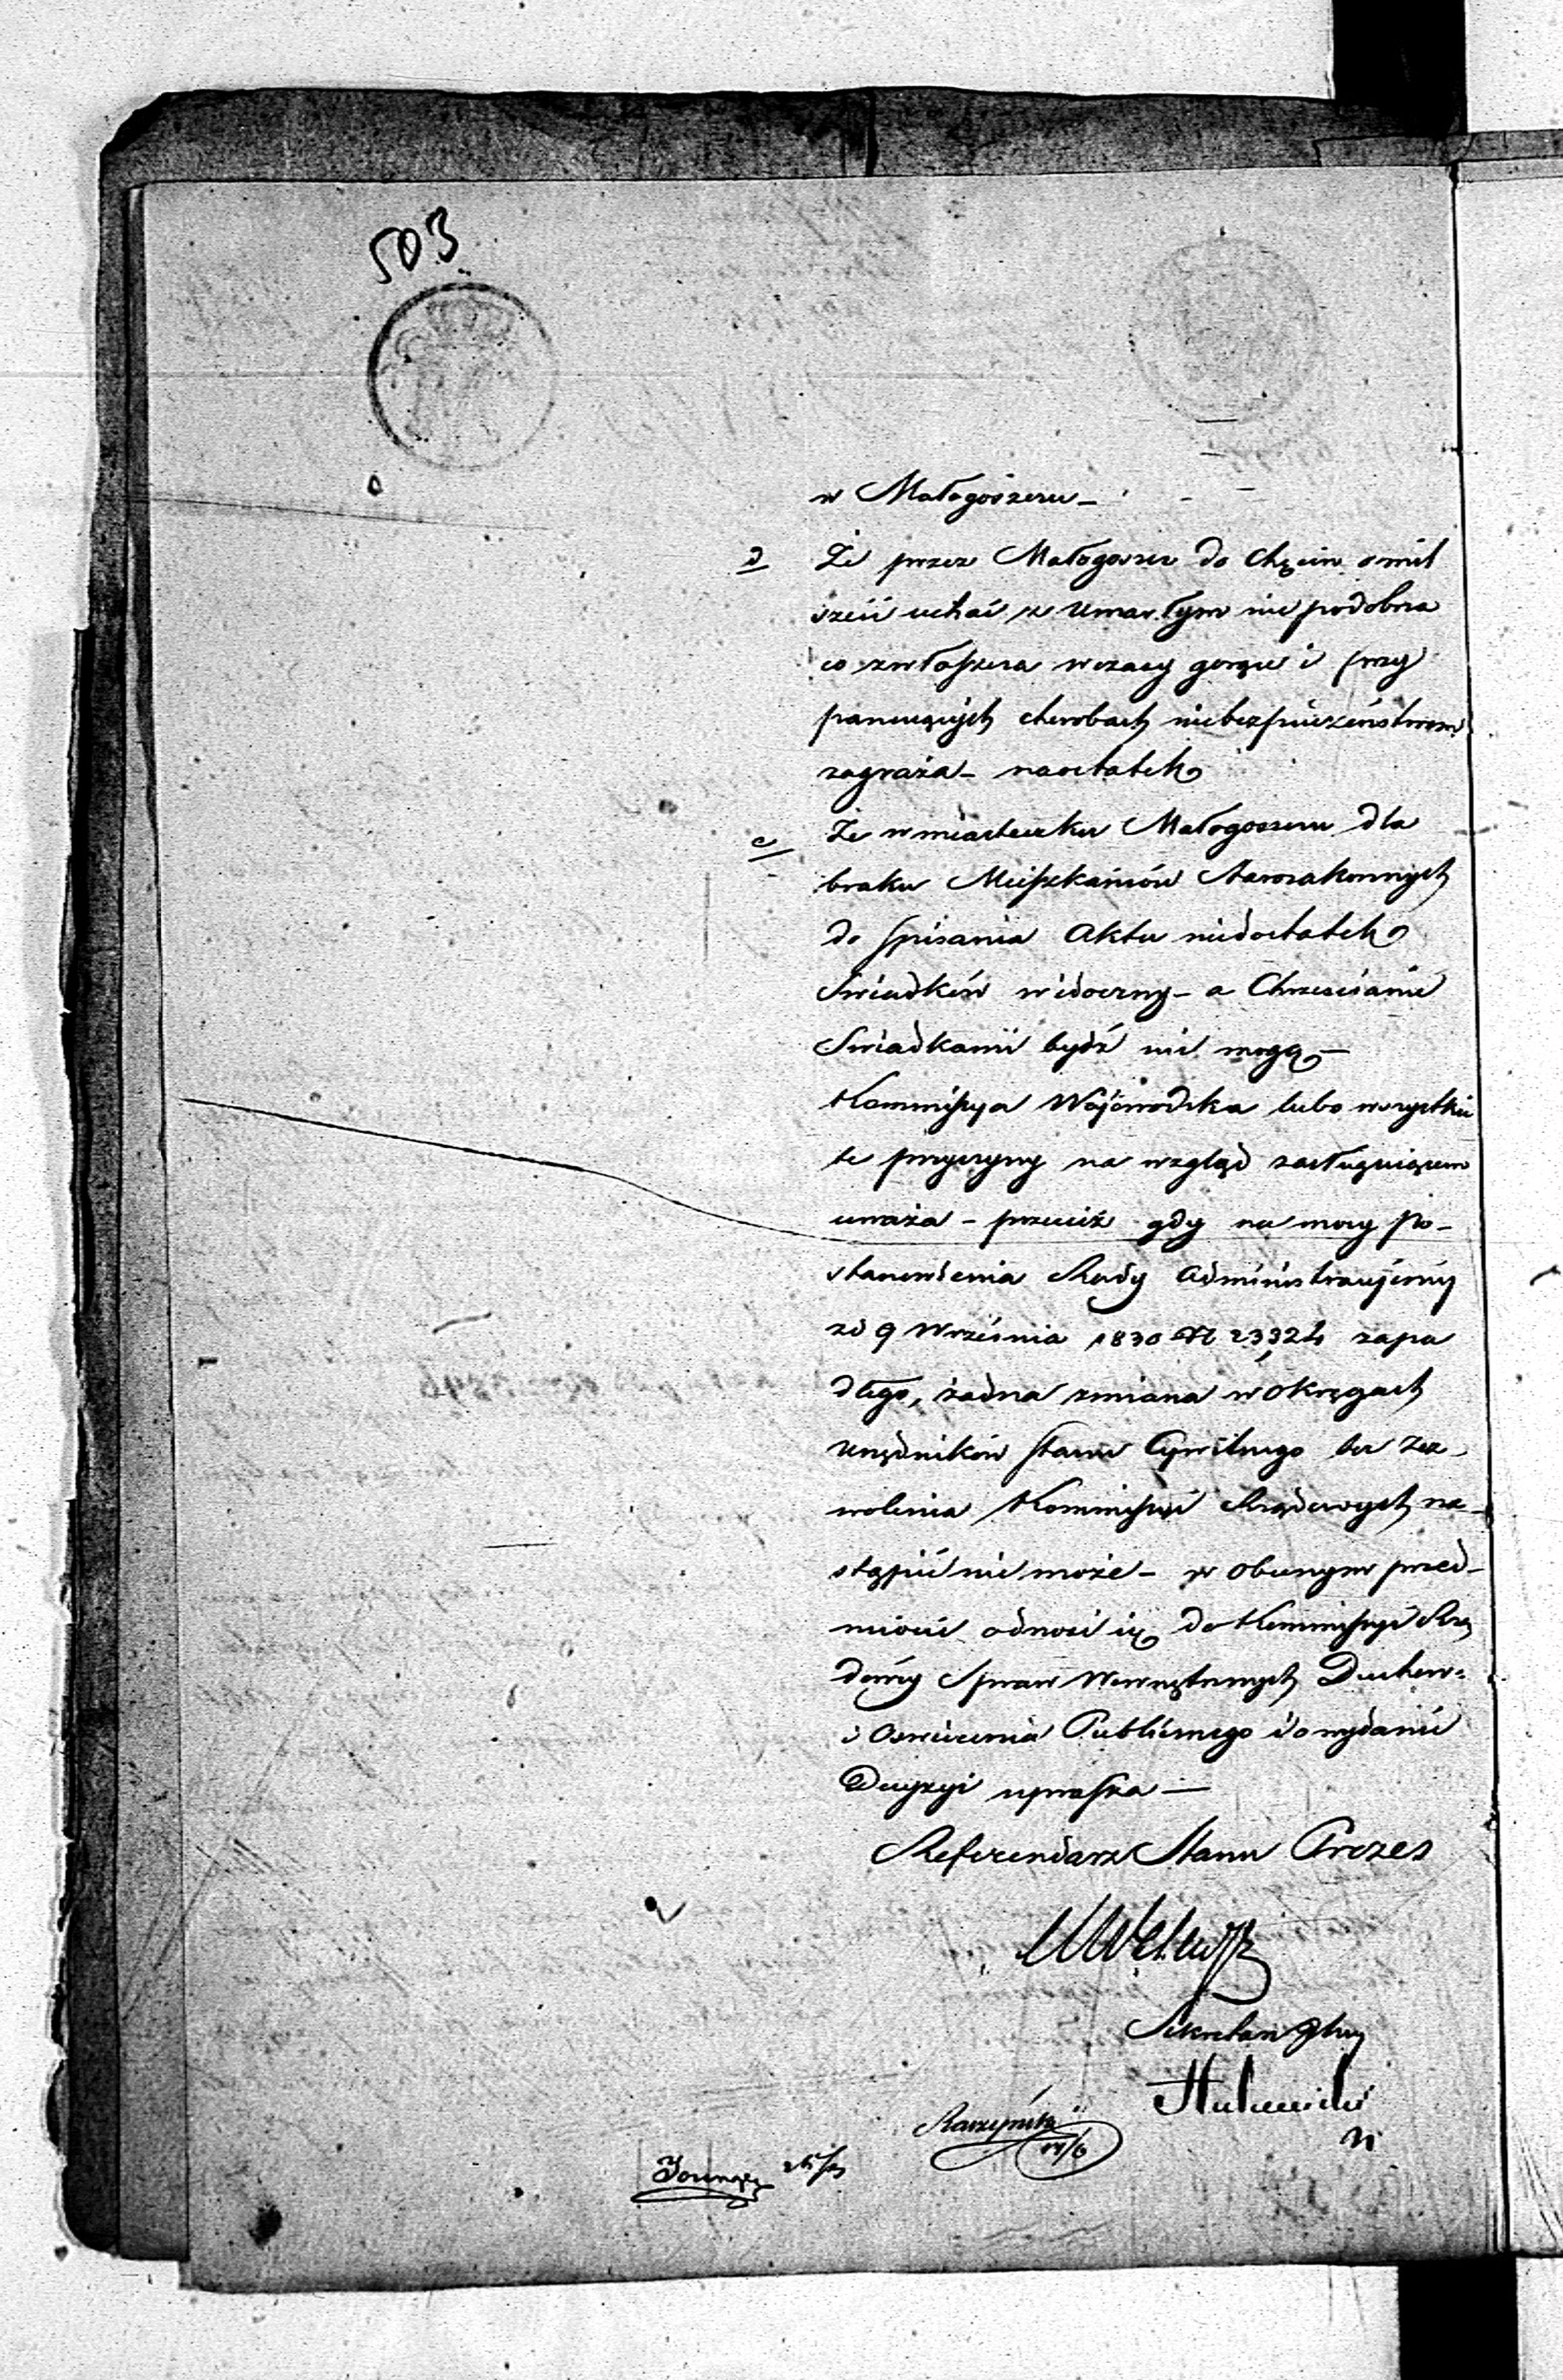 503
w Małogoszczu –
d Że przez Małogoszcz do Chęcin o mil
sześć uchać z umarłym nie podobna
co zwłaszcza w czasy gorące i przy
panujących chorobach niebezpieczeństwem
zagraża – naostatek
e Że w miasteczku Małogoszczu dla
braku Mieszkańców Starozakonnych
do spisania Aktu niedostatek
Swiadków widoczny – a Chrześcianie
Swiadkami bydź nie mogą –
Kommissya Wojewodzka lubo wszystkie
te przyczyny na wzgląd zasługuiącem
uważa – przecież gdy na mocy Po-
stanowienia Rady Administracyjnéy
zd 9 Września 1830 Nr 23,324 zapa
dłego, żadna zmiana w okręgach
urzędników stanu Cywilnego bez zez-
wolenia Kommissyi Rządowych na-
stąpić nie może – w obecnym przed-
miocie odnosi się do Kommissyi Rzą
dowéy Spraw Wewnętrznych Duchow:
i Oświecenia Publicznego i o wydanie
Decyzyi uprasza —
Referendarz Stanu Prezes
Sekretarz Jlny
Raczyński